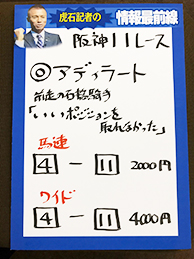 虎石記者の
情報最前線
阪神11レース
◎アディラート
前走の石橋騎手
「いいポジションを
取れなかった」
馬連
4 － 11 2000円
ワイド
4 － 11 4000円